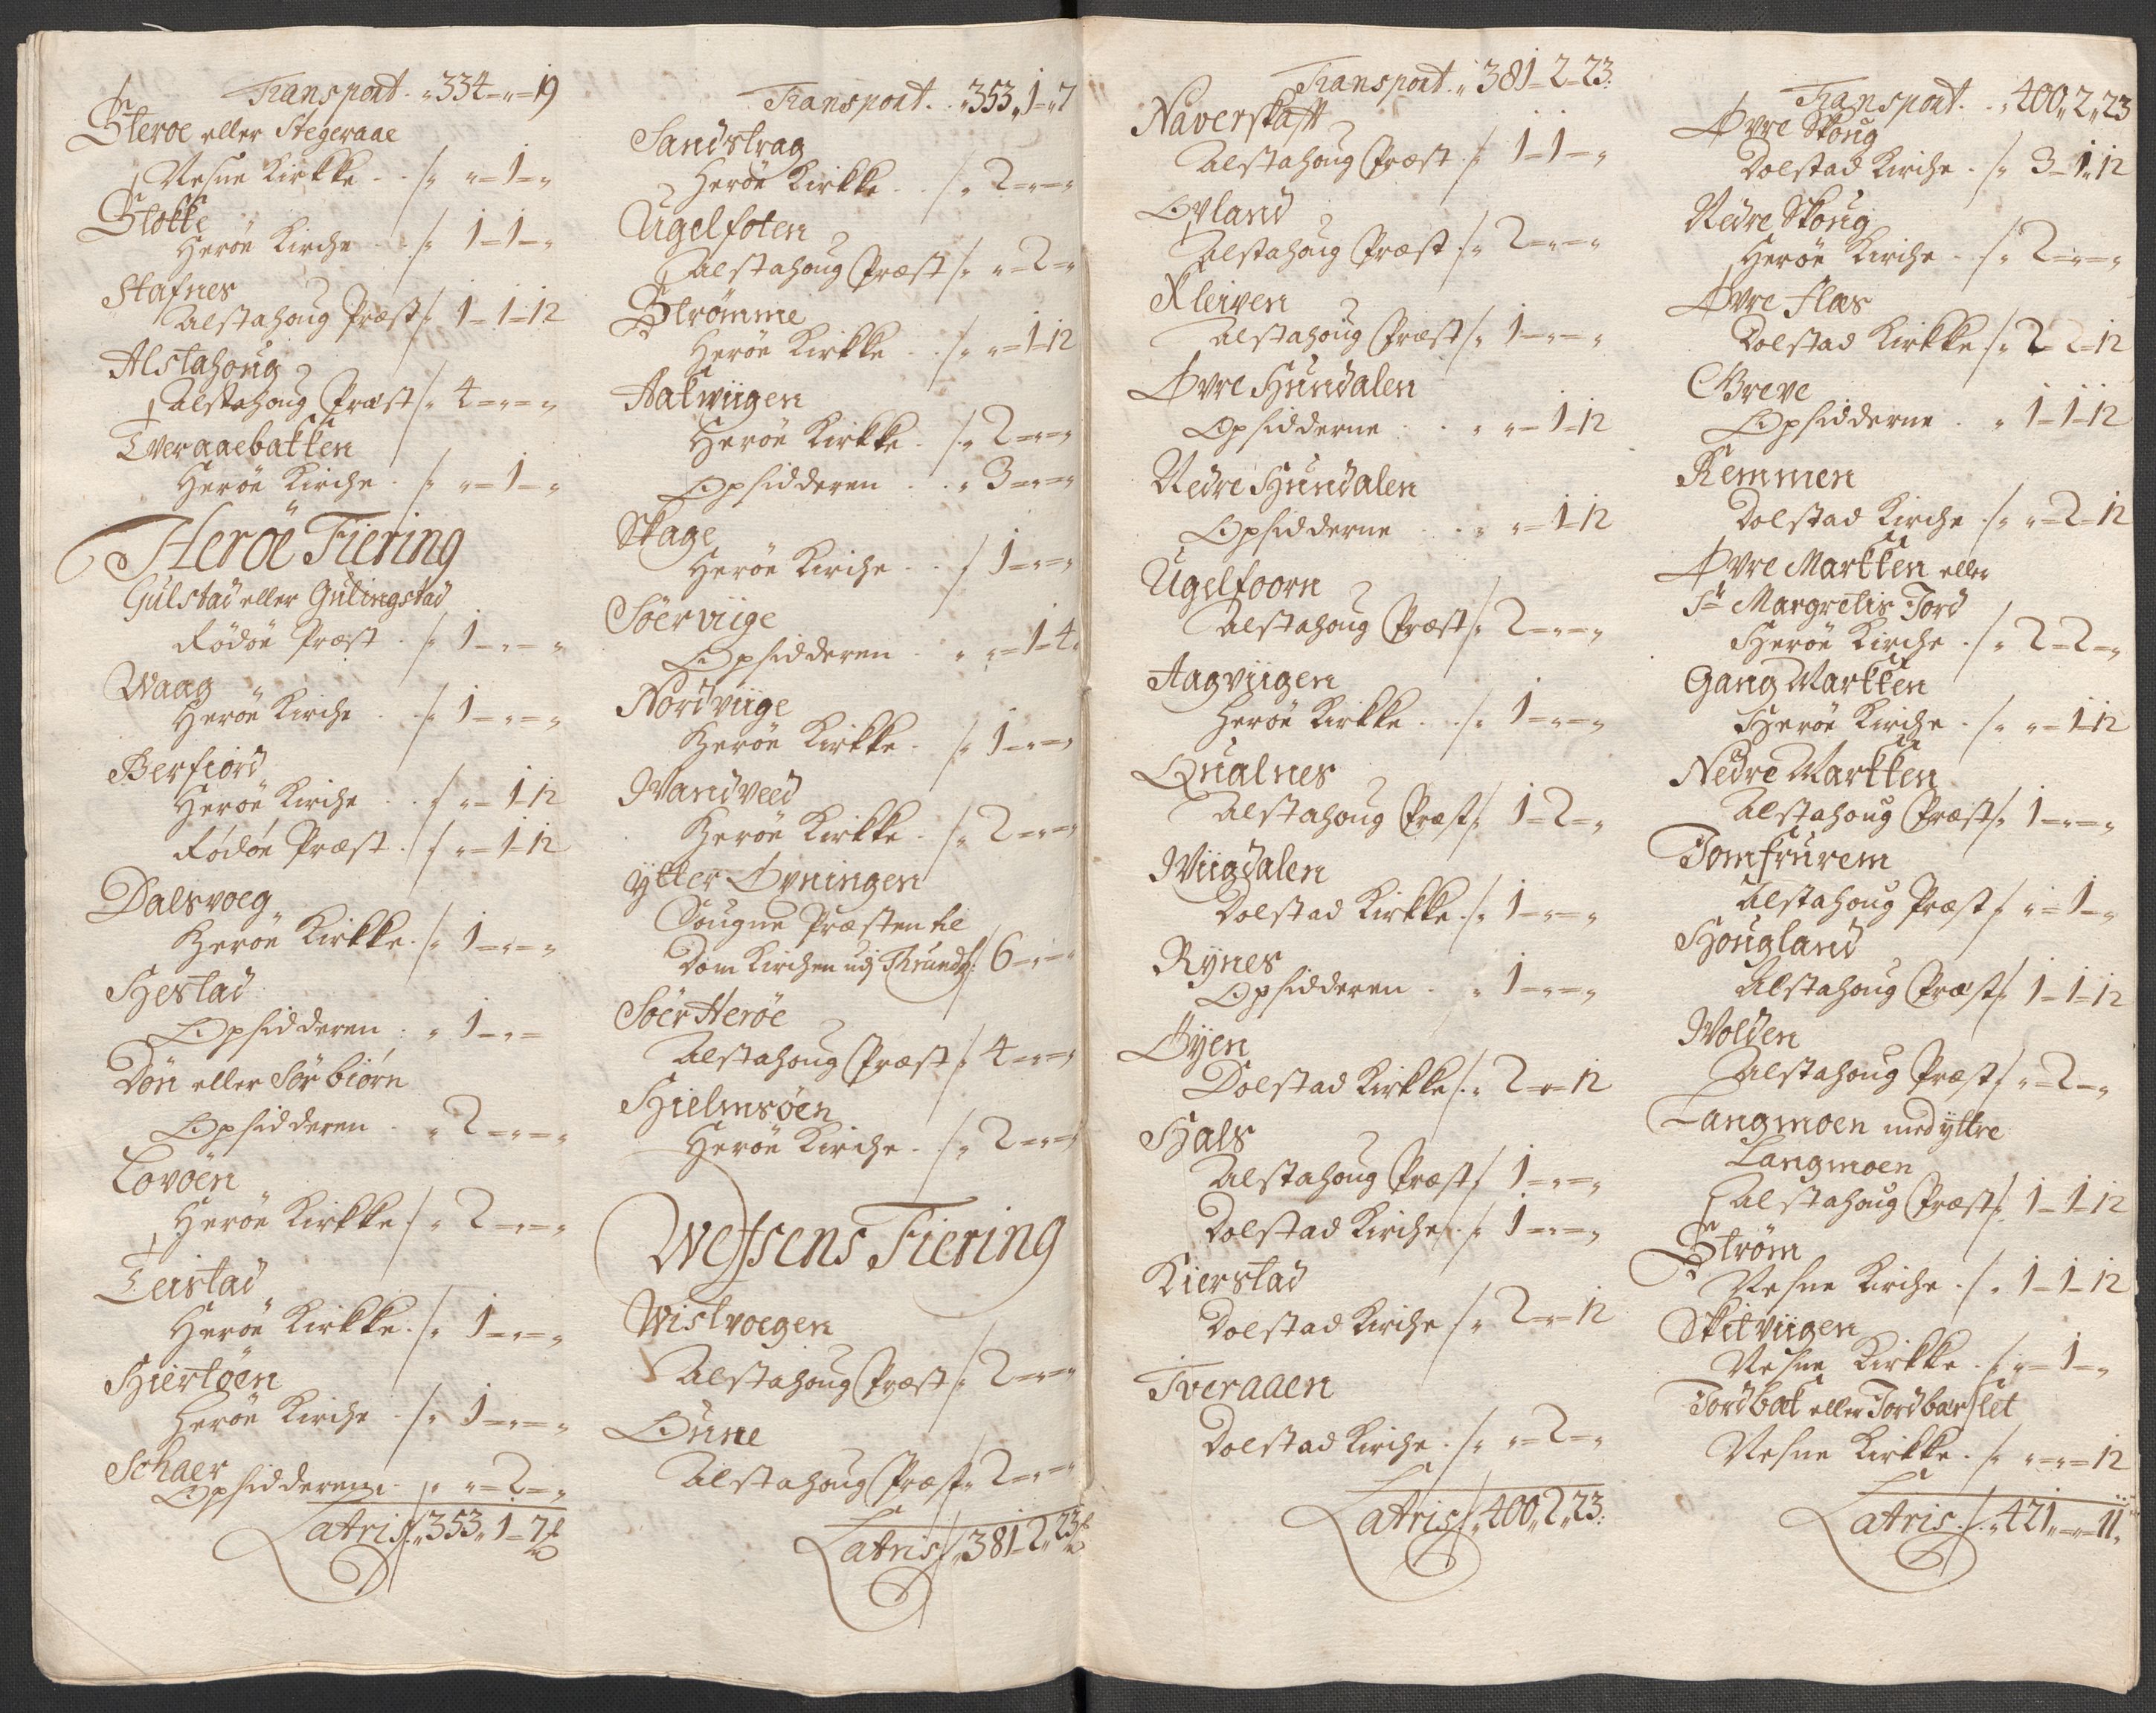 Transport. „ 334 – „ – 19
Steroe eller Stegeraae
Vefsne Kirkke . . /. „ – 1 – „
Stokke
Herøe Kirche . . /. 1 – 1 – „
Stafnes
Alstahoug Præst /. 1 – 1 – 12
Alstahoug
Alstahoug Præst /. 4 – „ – „
Tveraaebakken
Herøe Kirche . /. „ – 1 – „
Herøe Fiering
Gulstad eller Gulingstad
Rødøe Præst . /. 1 – „ – „
Waag
Herøe Kirche . /. 1 – „ – „
Berfiord
Herøe Kirche . . /. „ – 1 – 12
Rødøe Præst . /. „ – 1 – 12
Dalsvoeg
Herøe Kirkke . /. 1 – „ – „
Hestad
Opsidderen . „ 1 – „ –
Døn eller Sør biørn
Opsidderen . „ 2 – „ – „
Lovøen
Herøe Kirkke /. „ 2 – „ – „
Teistad
Herøe Kirkke . /. 1 – „ – „
Hiertøen
Herøe Kirche . /. 1 – „ – „
Schaer
Opsidderene . „ „ – 2 – „
Latris /. „ 353 „ 1 – 7
Transport . . „ 353 „ 1 – 7
Sandstrag
Herøe Kirkke . . /. 2 – „ – „
Ugelfoten
Alstahoug Præst /. „ – 2 – „
Strømme
Herøe Kirkke . . /. „ – 1 – 12
Aakwiigen
Herøe Kirkke . /. 2 – „ – „
Opsidderen . . „ 3 – „ – „
Skage
Herøe Kirche . . / 1 – „ – „
Søerviige
Opsidderen . „ „ – 1 – 4
Nordviige
Herøe Kirkke . /. 1 – „ – „
Wandveed
Herøe Kirkke . /. 2 – „ – „
ytter Øvningen
Sougne Præsten til
Dom Kirchen udj Trundh: / 6 – „ – „
Søer Herøe
Alstahoug Præst /. 4 – „ – „
Hielmsøen
Herøe Kirche . /. 2 – „ – „
Wefsens Fiering
Wistvoegen
Alstahoug Præst /. 2 – „ – „
Onne
Alstahoug Præst „ 2 – „ – „
Latris /. „ 381 – 2 „ 23
Transport . „ 381 – 2 – 23.
Naverskafft
Alstahoug Præst . /. 1 – 1 – „
Ovland
Alstahoug Præst . /. 2 – „ – „
Kleiven
Alstahoug Præst /. 1 – „ – „
Øvre Hundalen
Opsidderne . . „ „ – 1 – 12
Nedre Hundalen
Opsidderne . . „ „ – 1 – 12
Ugelfoorn
Alstahoug Præst /. 2 – „ – „
Aagviigen
Herøe Kirkke . . /. 1 – „ – „
Qualnes
Alstahoug Præst /. 1 – 2 – „
Wiigdalen
Dolstad Kirkke . /. 1 – „ – „
Rynes
Opsidderen . „ 1 – „ – „
Øyen
Dolstad Kirkke /. „ 2 – „ – 12
Hals
Alstahoug Præst / 1 – „ – „
Dolstad Kirche . /. 1 – „ – „
Kierstad
Dolstad Kirche /. 2 – „ – 12
Tveraaen
Dolstad Kirche . /. „ – 2 – „
Latris /. „ 400 „ 2 „ 23.
Transport . . „ 400 „ 2 „ 23
Øvre Skoug
Dolstad Kirche . /. 3 – 1 „ 12
Nedre Skoug
Herøe Kirche . /. 2 – „ – „
Øvre Flæs
Dolstad Kirkke /. 2 – 2 – 12
Greve
Opsidderne . „ 1 – 1 – 12
Remmen
Dolstad Kirche . /. „ – 2 – 12
Øvre Markken eller
St Margretis Jord
Herøe Kirche . /. 2 – 2 – „
Gang Markken
Herøe Kirche . /. „ – 1 – 12
Nedre Markken
Alstahoug Præst /. 1 – „ – „
Jomfrurem
Alstahoug Præst / „ – 1 – „
Hougland
Alstahoug Præst /. 1 – 1 – 12
Wolden
Alstahoug Præst / „ – 2 – „
Langmoen med yttre
Langmoen
Alstahoug Præst /. 1 – 1 – 12
Strøm
Vefsne Kirche . /. 1 – 1 – 12
Skitviigen
Vefsne Kirkke . /. „ – 1 – „
Jordbæk eller Jordbærslet
Vefsne Kirkke . /. „ – „ – 12
Latris . /. „ 421 „ – „ – 11 „